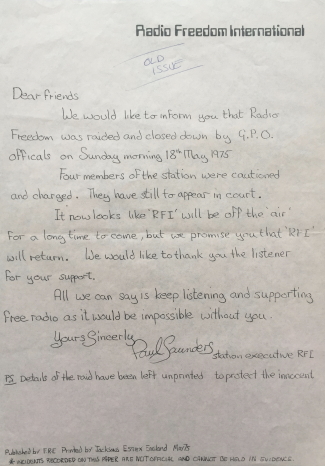 Radio Freedom International
OLD
ISSUE
Dear Friends
We would like to inform you that Radio
Freedom was raided and closed down by G.P.O.
officals on Sunday morning 18th May 1975
Four members of the station were cautioned
and charged. They have still to appear in court.
It now looks like 'RFI' will be off the 'air'
for a long time to come, but we promise you that 'RFI'
will return. We would like to thank you the listener
for your support.
All we can say is keep listening and supporting
free radio as it would be impossible without you.
Yours Sincerly
Paul Saunders station executive RFI
PS. Details of the raid have been left unprinted to protect the innocent
Published by EBC Printed by Jackians Essex England May75
* INCIDENTS RECORDED ON THIS PAPER ARE NOT OFFICIAL AND CANNOT BE HELD IN EVIDENCE.